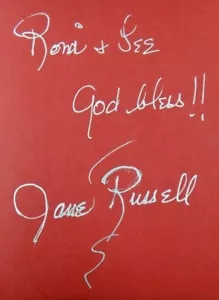 Roni & Lee
God bless!!
Jane Russell